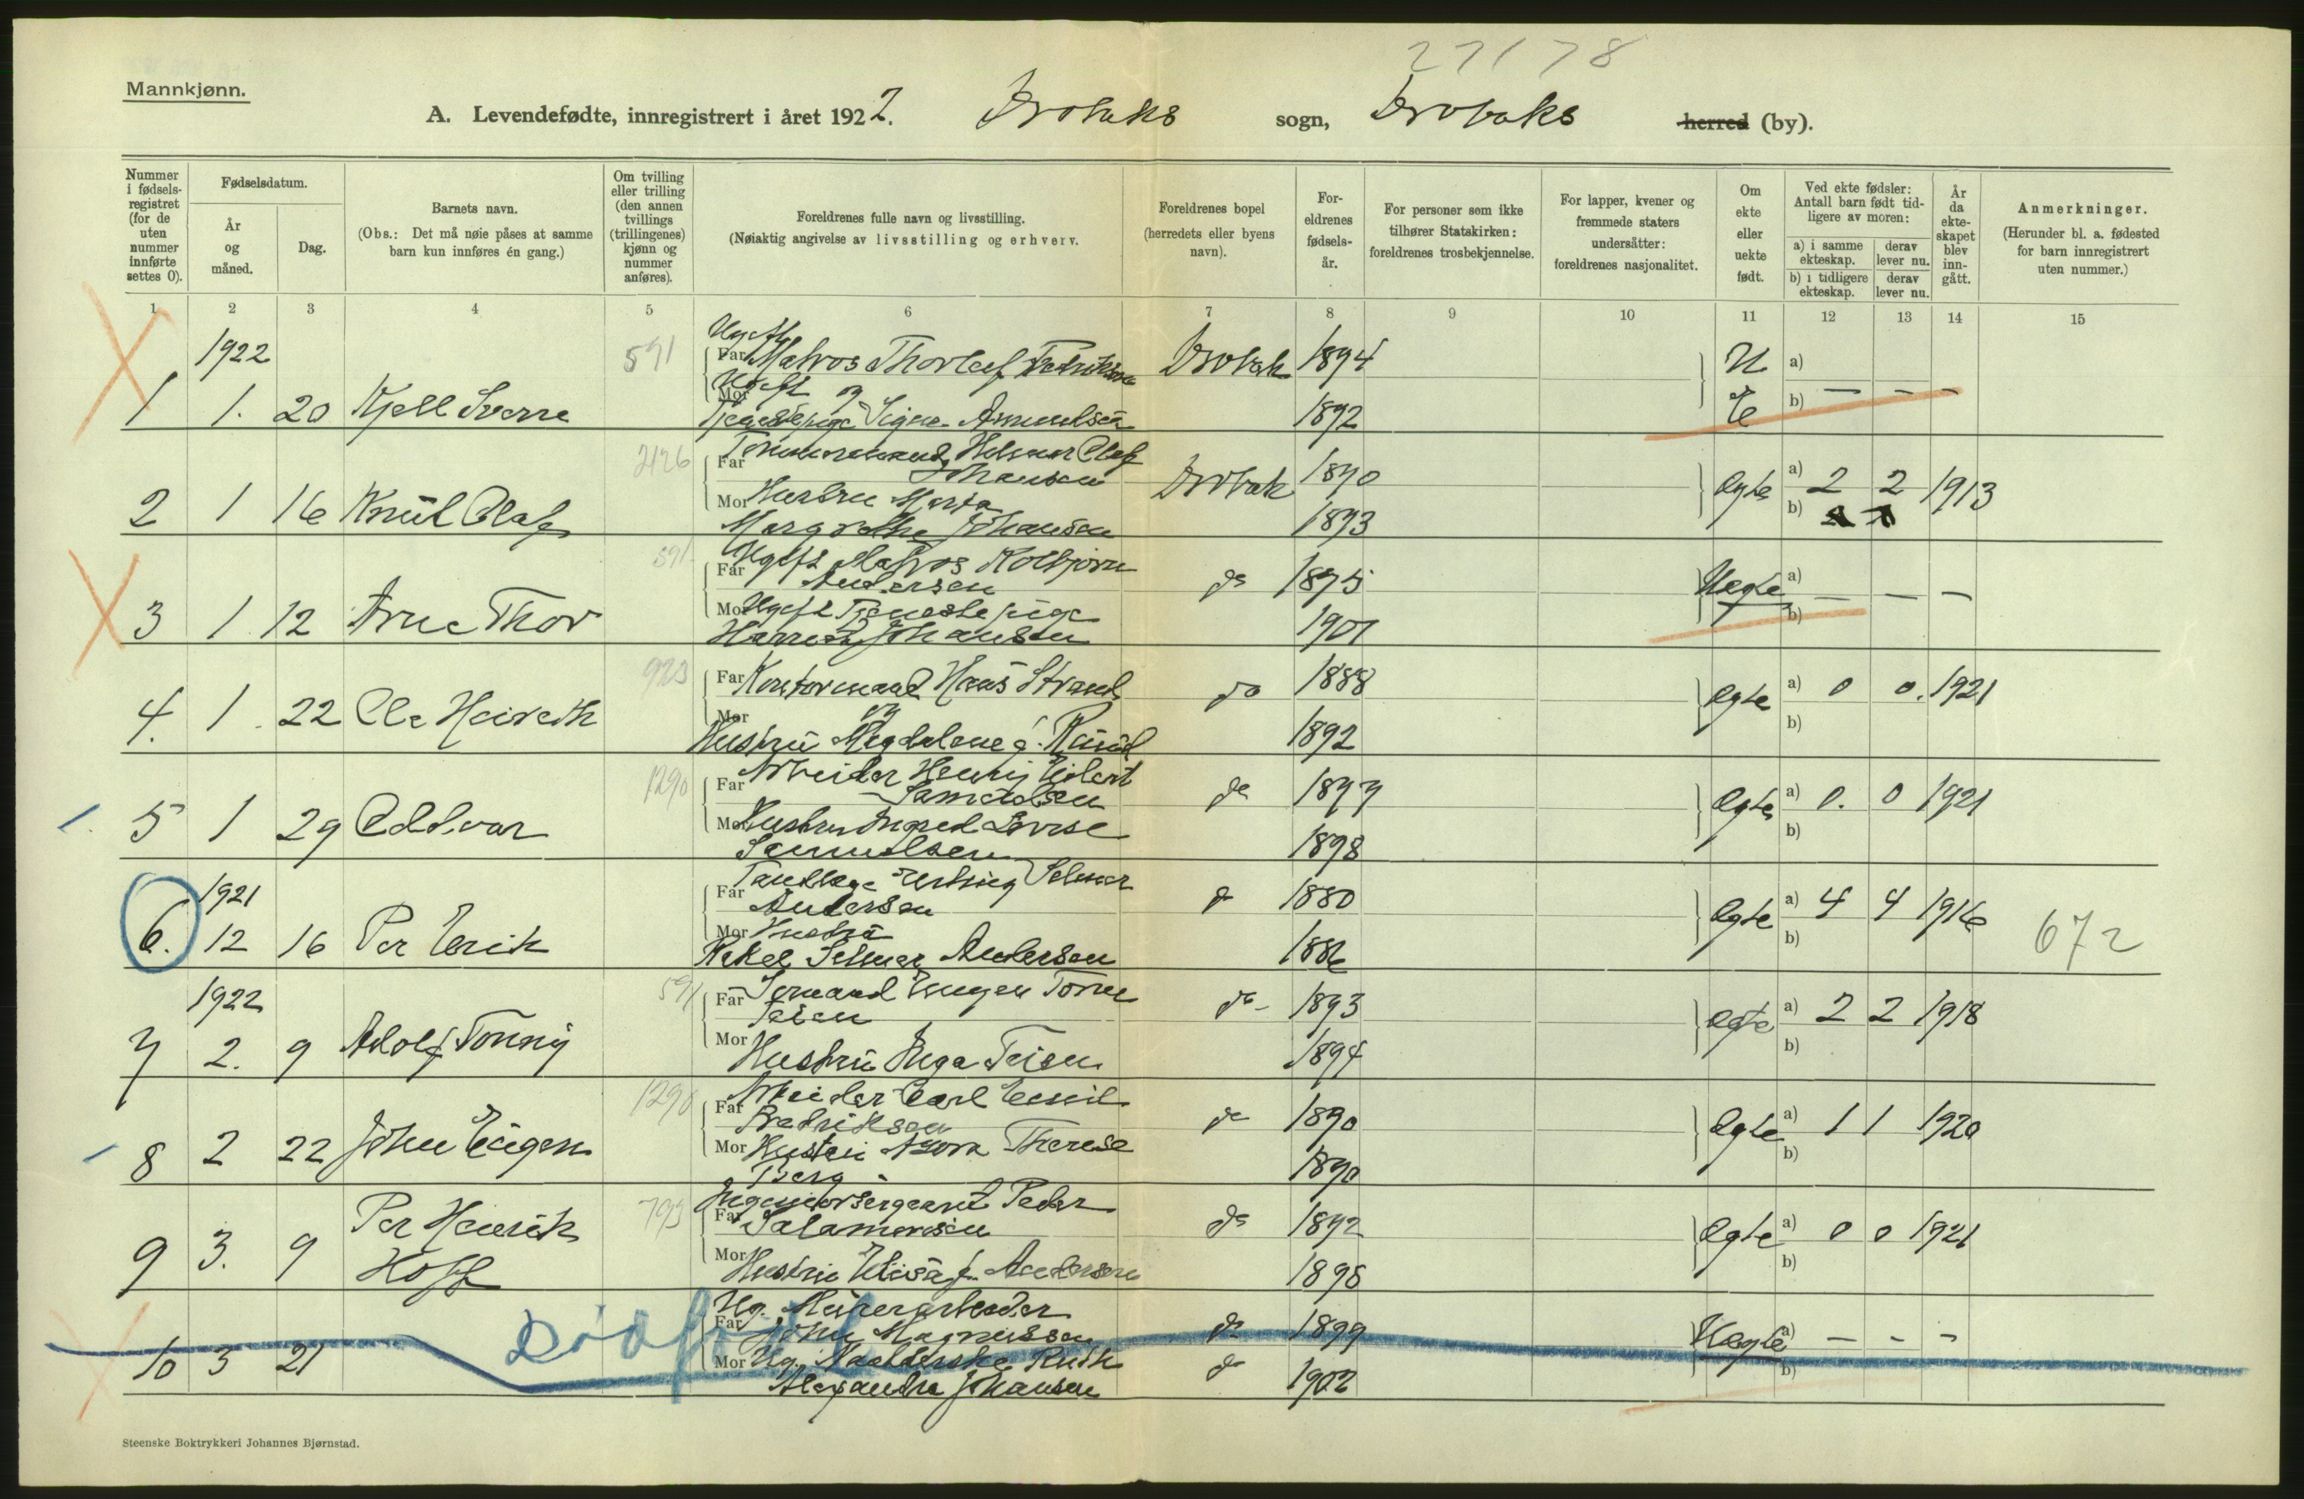 27178
Mannkjønn.
A. Levendefødte, innregistrert i året 1922. Drobaks sogn, Drobaks herred (by).
Nummer i fødsels-registret (for de uten nummer innførte settes 0).
Fødselsdatum.
År og måned.
Dag.
Barnets navn.
(Obs.: Det må nøie påses at samme barn kun innføres én gang.)
Om tvilling eller trilling (den annen tvillings (trillingenes) kjønn og nummer anføres).
Foreldrenes fulle navn og livsstilling.
(Nøiaktig angivelse av livsstilling og erhverv.
Foreldrenes bopel (herredets eller byens navn).
For-eldrenes fødsels-år.
For personer som ikke tilhører Statskirken: foreldrenes trosbekjennelse.
For lapper, kvener og fremmede staters undersåtter: foreldrenes nasjonalitet.
Om ekte eller uekte født.
Ved ekte fødsler: Antall barn født tid-ligere av moren:
a) i samme ekteskap.
derav lever nu.
b) i tidligere ekteskap.
derav lever nu.
År da ekte-skapet blev inn-gått.
Anmerkninger.
(Herunder bl. a. fødested for barn innregistrert uten nummer.)
1 2 3 4 5 6 7 8 9 10 11 12 13 14 15
1922
Ugift
591 Far Matros Thorleif Fredriksen Drobak 1894 U a)
Mor Ugift og
1 1. 20 Kjell Sverre Signe Amundsen 1892 E b) — — —
2126 Far Hilmar Olaf Johansen Drobak 1890 Ægte a) 2 2 1913
Mor Hustru Maria
2 1 16 Knut Olaf Margrethe Johansen 1893 b)
591 Far Ugift Matros Kolbjørn Andersen do 1895 Uægte a)
Mor Ugift Tjenestepige
3 1 12 Arne Thor Harriet Johansen 1901 b) — — —
923 Far Kontormand Hans Strand do 1888 Ægte a) 0 0. 1921
Mor og
4. 1. 22 Ole Heinrik Hustru Magdalene f. 1892 b)
1290 Far Arbeider Henry Eilert Samuelsen do 1897 Ægte a) 0. 0 1921
Mor Hustru Ingrid Lovise
5 1 29 Oddvar Samuelsen 1898 b)
1921
Far Tandlæge Selmer Andersen do 1880 Ægte a) 4 4 1916 672
Mor Hustru
6. 12 16 Per Erik Rakel Selmer Andersen 1886 b)
1922
591 Far Sømand Eugen Teien do 1893 Ægte a) 2 2 1918
7 2. 9 Adolf Tonny Mor Hustru Inga Teien 1894 b)
1290 Far Arbeider Carl Emil Fredriksen do 1890 Ægte a) 1 1 1920
8 2 22 John Eugen Mor Hustru Therese Berg 1890 b)
793 Far Ingeniørsergeant Peder Salamonsen do 1892 Ægte a) 0 0 1921
9 3. 9 Per Henrik Hoff Mor Hustru Elisa f. Andersen 1898 b)
Ug.
Dødfødt Far John Magnussen do 1899 Uægte a) — — —
10 3 21 Mor Ug. Ruth Alexandra Johansen do 1902 b)
Steenske Boktrykkeri Johannes Bjørnstad.